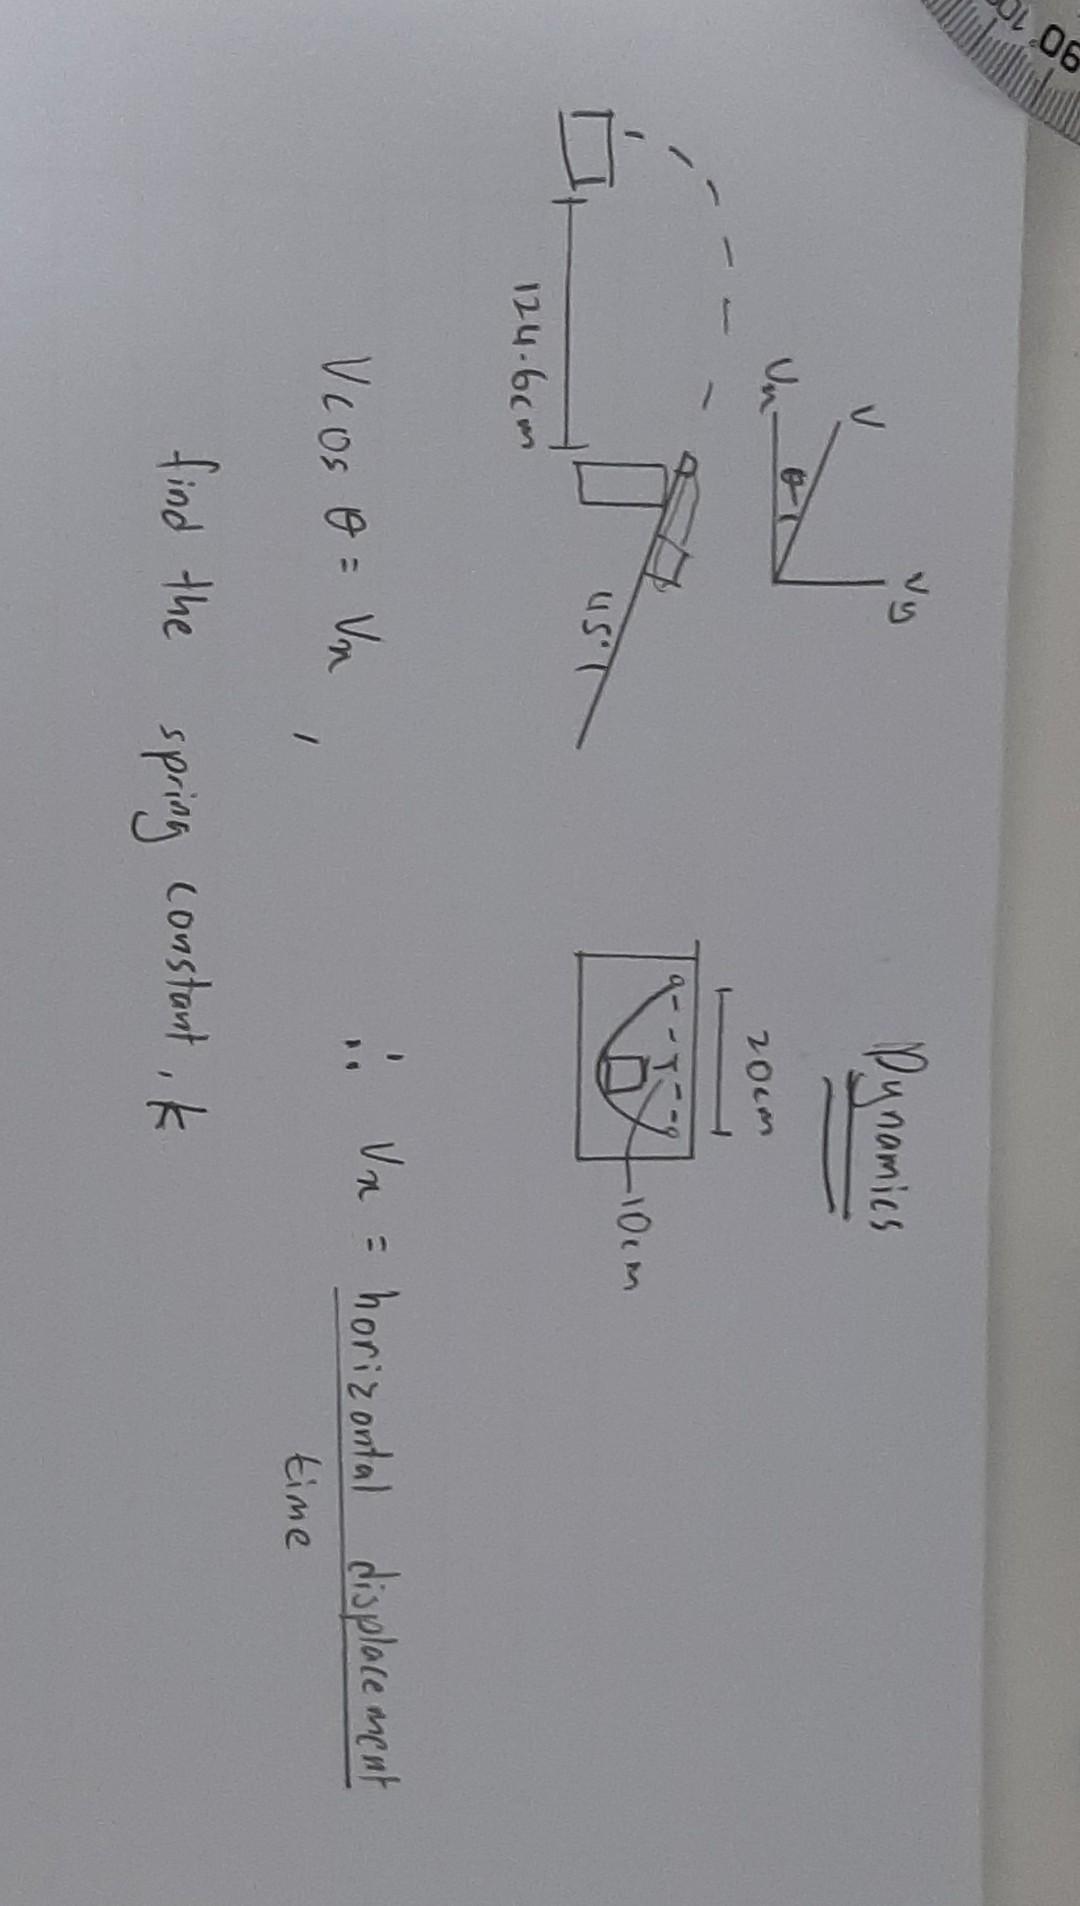 Dynamics
Vy
V
θ
Vx
20cm
10cm
45°
124.6cm
V cos θ = Vx , ∴ Vx = horizontal displacement
time
find the spring constant, k
90
100